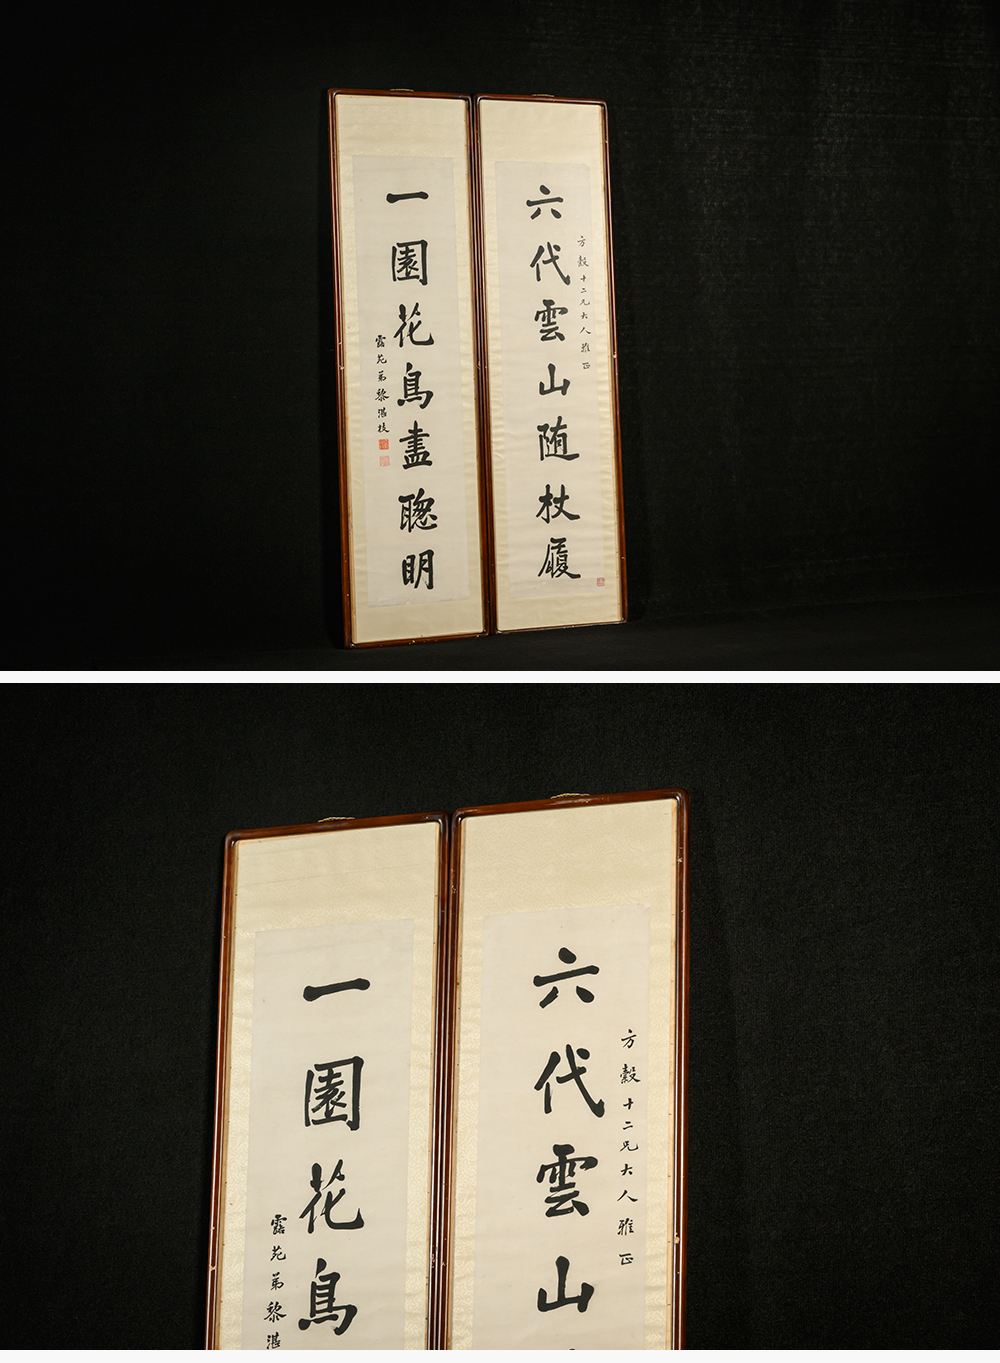 六代雲山随杖履
方縠十二兄大人雅正
一園花鳥盡聰明
露苑弟黎湛枝
六代雲山
方縠十二兄大人雅正
一園花鳥
露苑弟黎湛